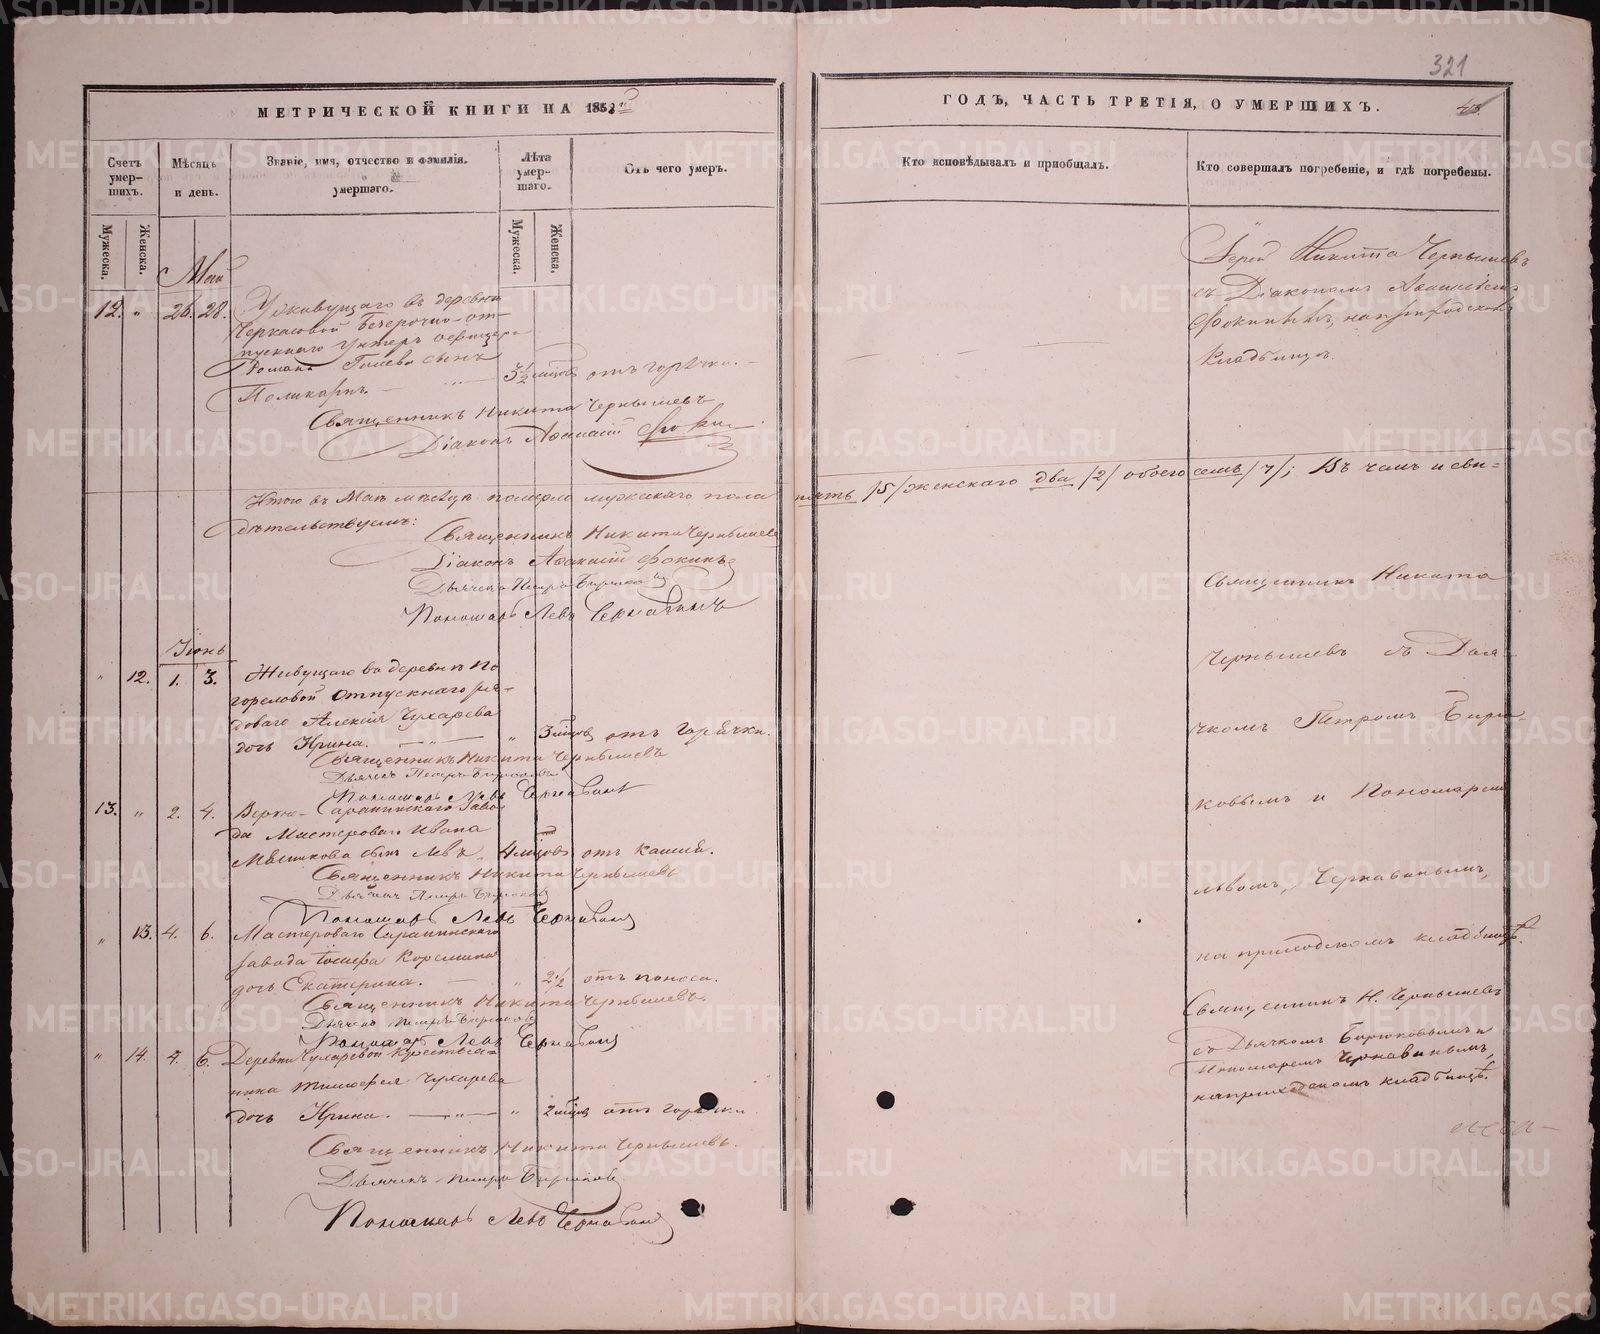 321
МЕТРИЧЕСКОЙ КНИГИ НА 1858й
ГОДЪ, ЧАСТЬ ТРЕТІЯ, О УМЕРШИХЪ.
Счетъ умер-шихъ.
Мѣсяцъ и день.
Званіе, имя, отчество и фамилія умершаго.
Лѣта умер-шаго.
Отъ чего умеръ.
Кто исповѣдывалъ и пріобщалъ.
Кто совершалъ погребеніе, и гдѣ погребены.
Мужеска.
Женска.
Мужеска.
Женска.
Май
12. " 26. 28. Уживущаго въ деревни
Черкасовой
пускнаго Унтеръ офицера
Романа сынъ
Поликарпъ. 3½ мѣсцовъ отъ горячки.
Священникъ Никита Чернышевъ
Діаконъ Аѳанасій Фокинъ
Іерей Никита Чернышевъ
съ Діакономъ Аѳанасіемъ
Фокинымъ, на приходскомъ
кладбищѣ.
Итого въ Маѣ мѣсяцѣ померло мужескаго пола пять /5/ женскаго два /2/ обоего семь /7/; Въ чемъ и сви-
дѣтельствуемъ:
Священникъ Никита Чернышевъ
Діаконъ Аѳанасій Фокинъ
Дьячекъ Петръ Бирюковъ
Пономарь Левъ Чернавинъ
Іюнь
" 12. 1. 3. Живущаго въ деревнѣ По
гореловой отпускнаго ря-
доваго Алексія Чухарева
дочь Ирина. " 3 мѣсцовъ отъ горячки.
Священникъ Никита Чернышевъ
Дьячекъ Петръ Бирюковъ
Пономарь Левъ Чернавинъ
13. " 2. 4. Верхне-Саранинскаго Заво-
да Мастероваго Ивана
сынъ Левъ. 4 мѣсцовъ отъ кашля.
Священникъ Никита Чернышевъ
Дьячекъ Петръ Бирюковъ
Пономарь Левъ Чернавинъ
" 13. 4. 6. Мастероваго Саранинскаго
завода
дочь Екатерина. " 2½ отъ поноса.
Священникъ Никита Чернышевъ.
Дьячекъ Петръ Бирюковъ
Пономарь Левъ Чернавинъ
" 14. 4. 6. Деревни Крестья-
нина Тимоѳея Чухарева
дочь Ирина. " 2 мѣсцовъ отъ горячки.
Священникъ Никита Чернышевъ.
Дьячекъ Петръ Бирюковъ.
Пономарь Левъ Чернавинъ
Священникъ Никита
Чернышевъ съ Дья-
чкомъ Петромъ Бирю-
ковымъ и Пономаремъ
Львомъ Чернавинымъ,
на приходскомъ кладбищѣ.
Священникъ Н. Чернышевъ
съ Дьячкомъ Бирюковымъ и
Пономаремъ Чернавинымъ,
на приходскомъ кладбищѣ.
METRIKI.GASO-URAL.RU